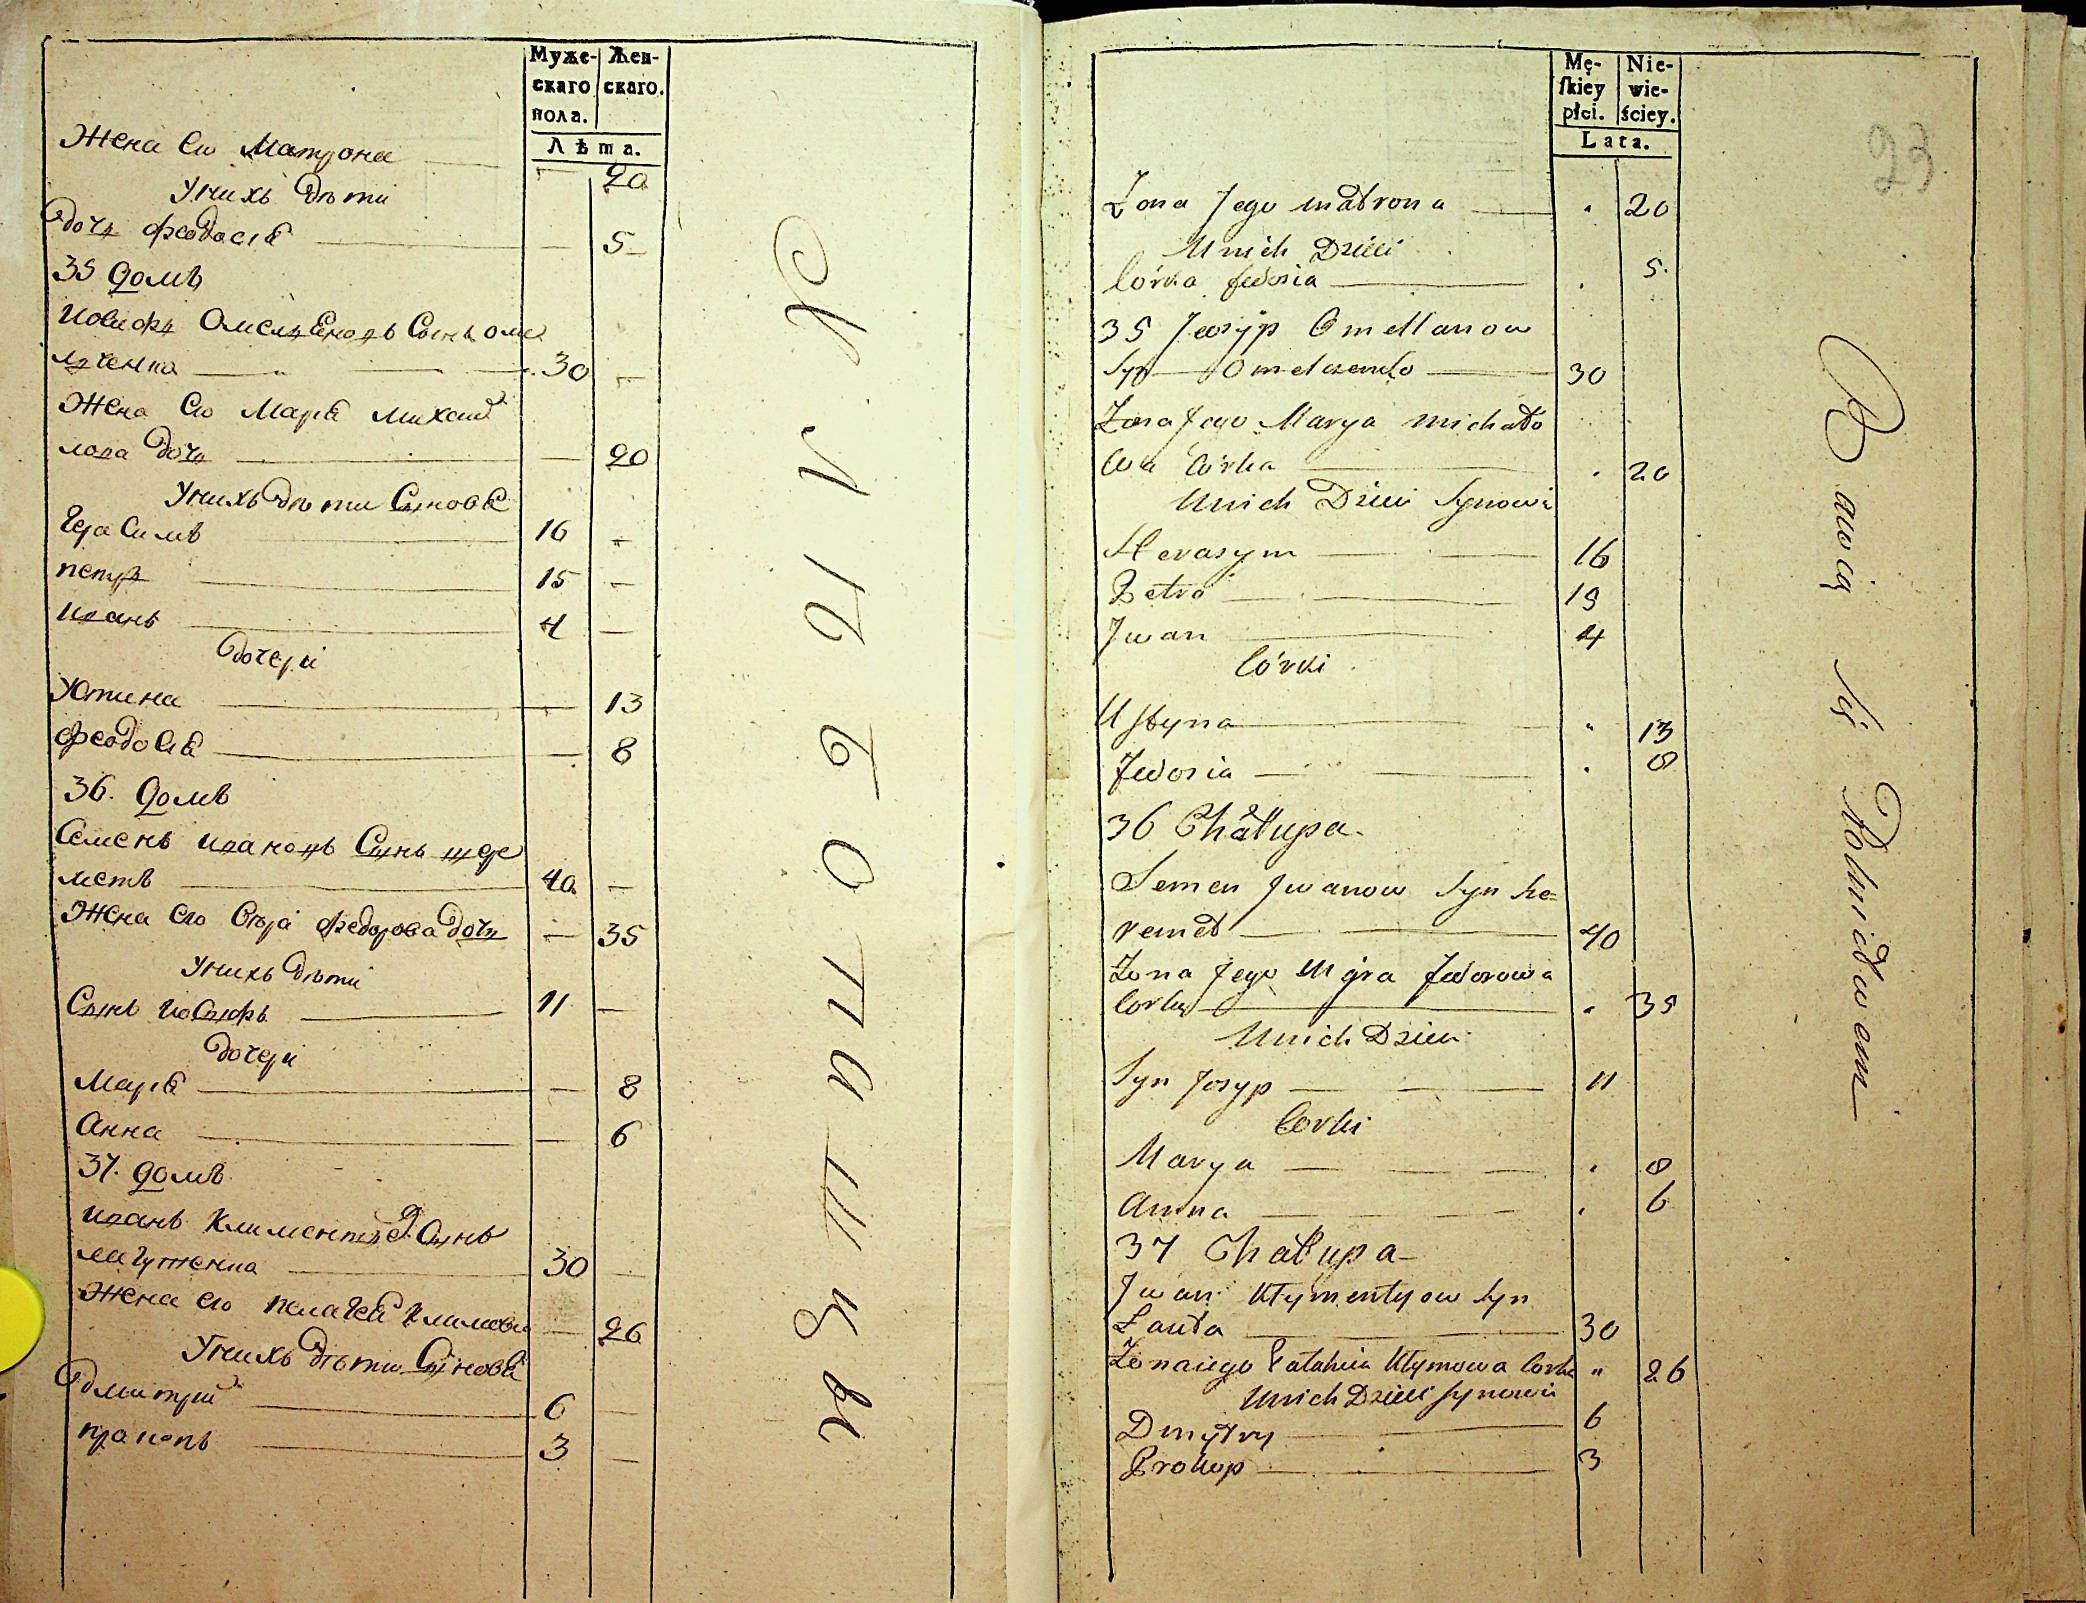 Муже-
скаго
пола.
Жен-
скаго.
Лѣта.
Жена Его Матрона — 20
У нихъ дѣти
дочь феодосія — 5
35 домъ
Иосифъ Омеляновъ Сынъ Оме
лченко — 30 —
Жена Его Марія Михай
лова дочь — 20
У нихъ дѣти Сыновя
Герасимъ 16 —
петръ 15 —
иванъ 4 —
дочери
Устина — 13
феодосія — 8
36. домъ
Семенъ ивановъ Сынъ шере
метъ 40 —
Жена Его федорова дочь — 35
У нихъ дѣти
Сынъ иосифъ 11 —
дочери
Марія — 8
Анна — 6
37. домъ
иванъ Климентіевъ Сынъ
30 —
Жена Его пелагея Климова — 26
У нихъ дѣти Сыновя
дмитрій 6 —
прокопъ 3 —
Хлѣбопашцы
Mę-
skiey
płci.
Nie-
wie-
ściey.
Lata.
23
Żona Jego Matrona " 20
U nich Dzieci
Córka fedosia . 5.
35 Jeosyp Omellanow
Syn Omelczenko 30
Żona Jego Marya Michało
wa Córka . 20
U nich Dzieci Synowi
Herasym 16
Petro 15
Jwan 4
Córki
Ustyna " 13
fedosia . 8
36 Chałupa.
Semen Jwanow Syn Sze=
remet 40
Żona Jego fedorowa
Corka " 35
U nich Dzieci
Syn Josyp 11
Corki
Marya . 8
Anna . 6
37 Chałupa
Jwan Kłymentyow Syn
30
Żona iego Pałahia Kłymowa Corka " 26
U nich Dzieci Synowie
Dmytry 6
Prokop 3
Bawią się Rolnictwem